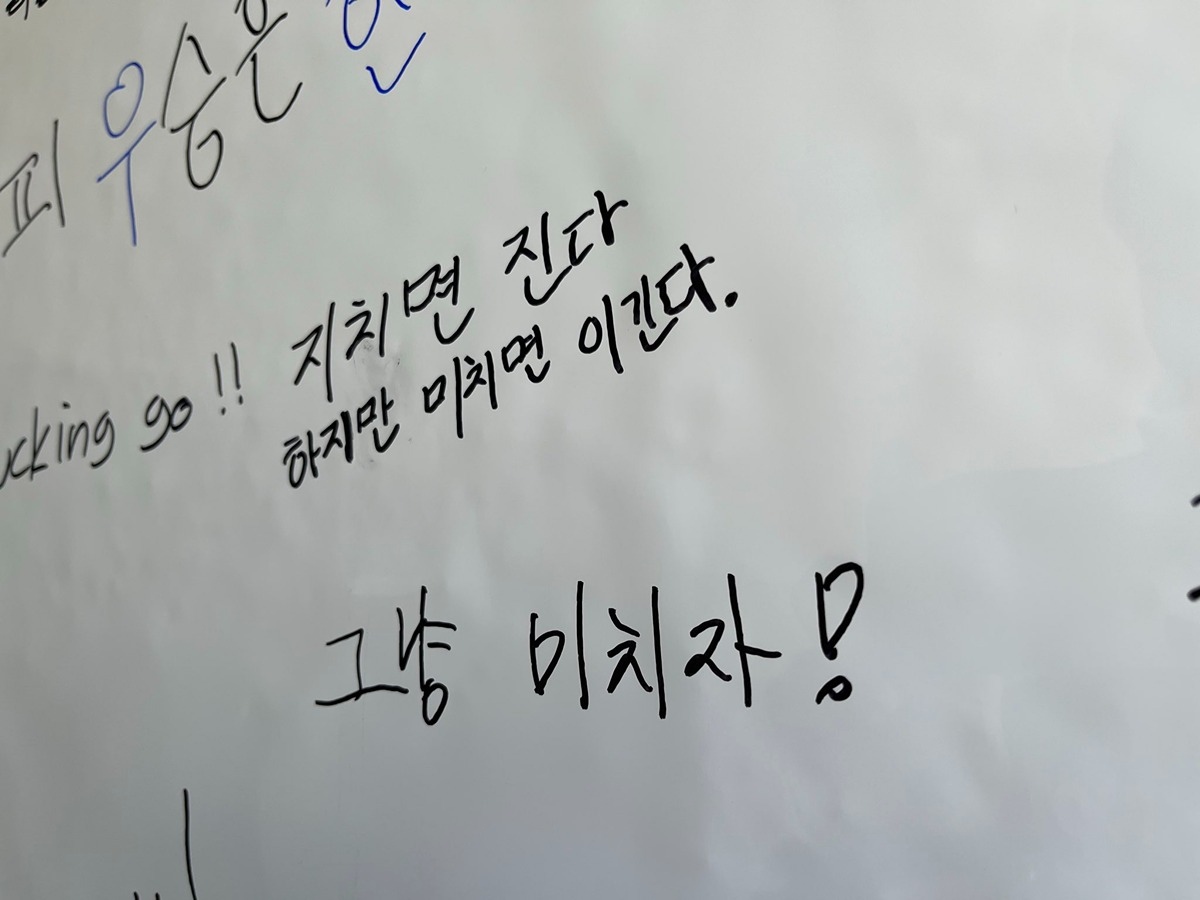 피 우승은
go!! 지치면 진다
하지만 미치면 이긴다.
그냥 미치자!